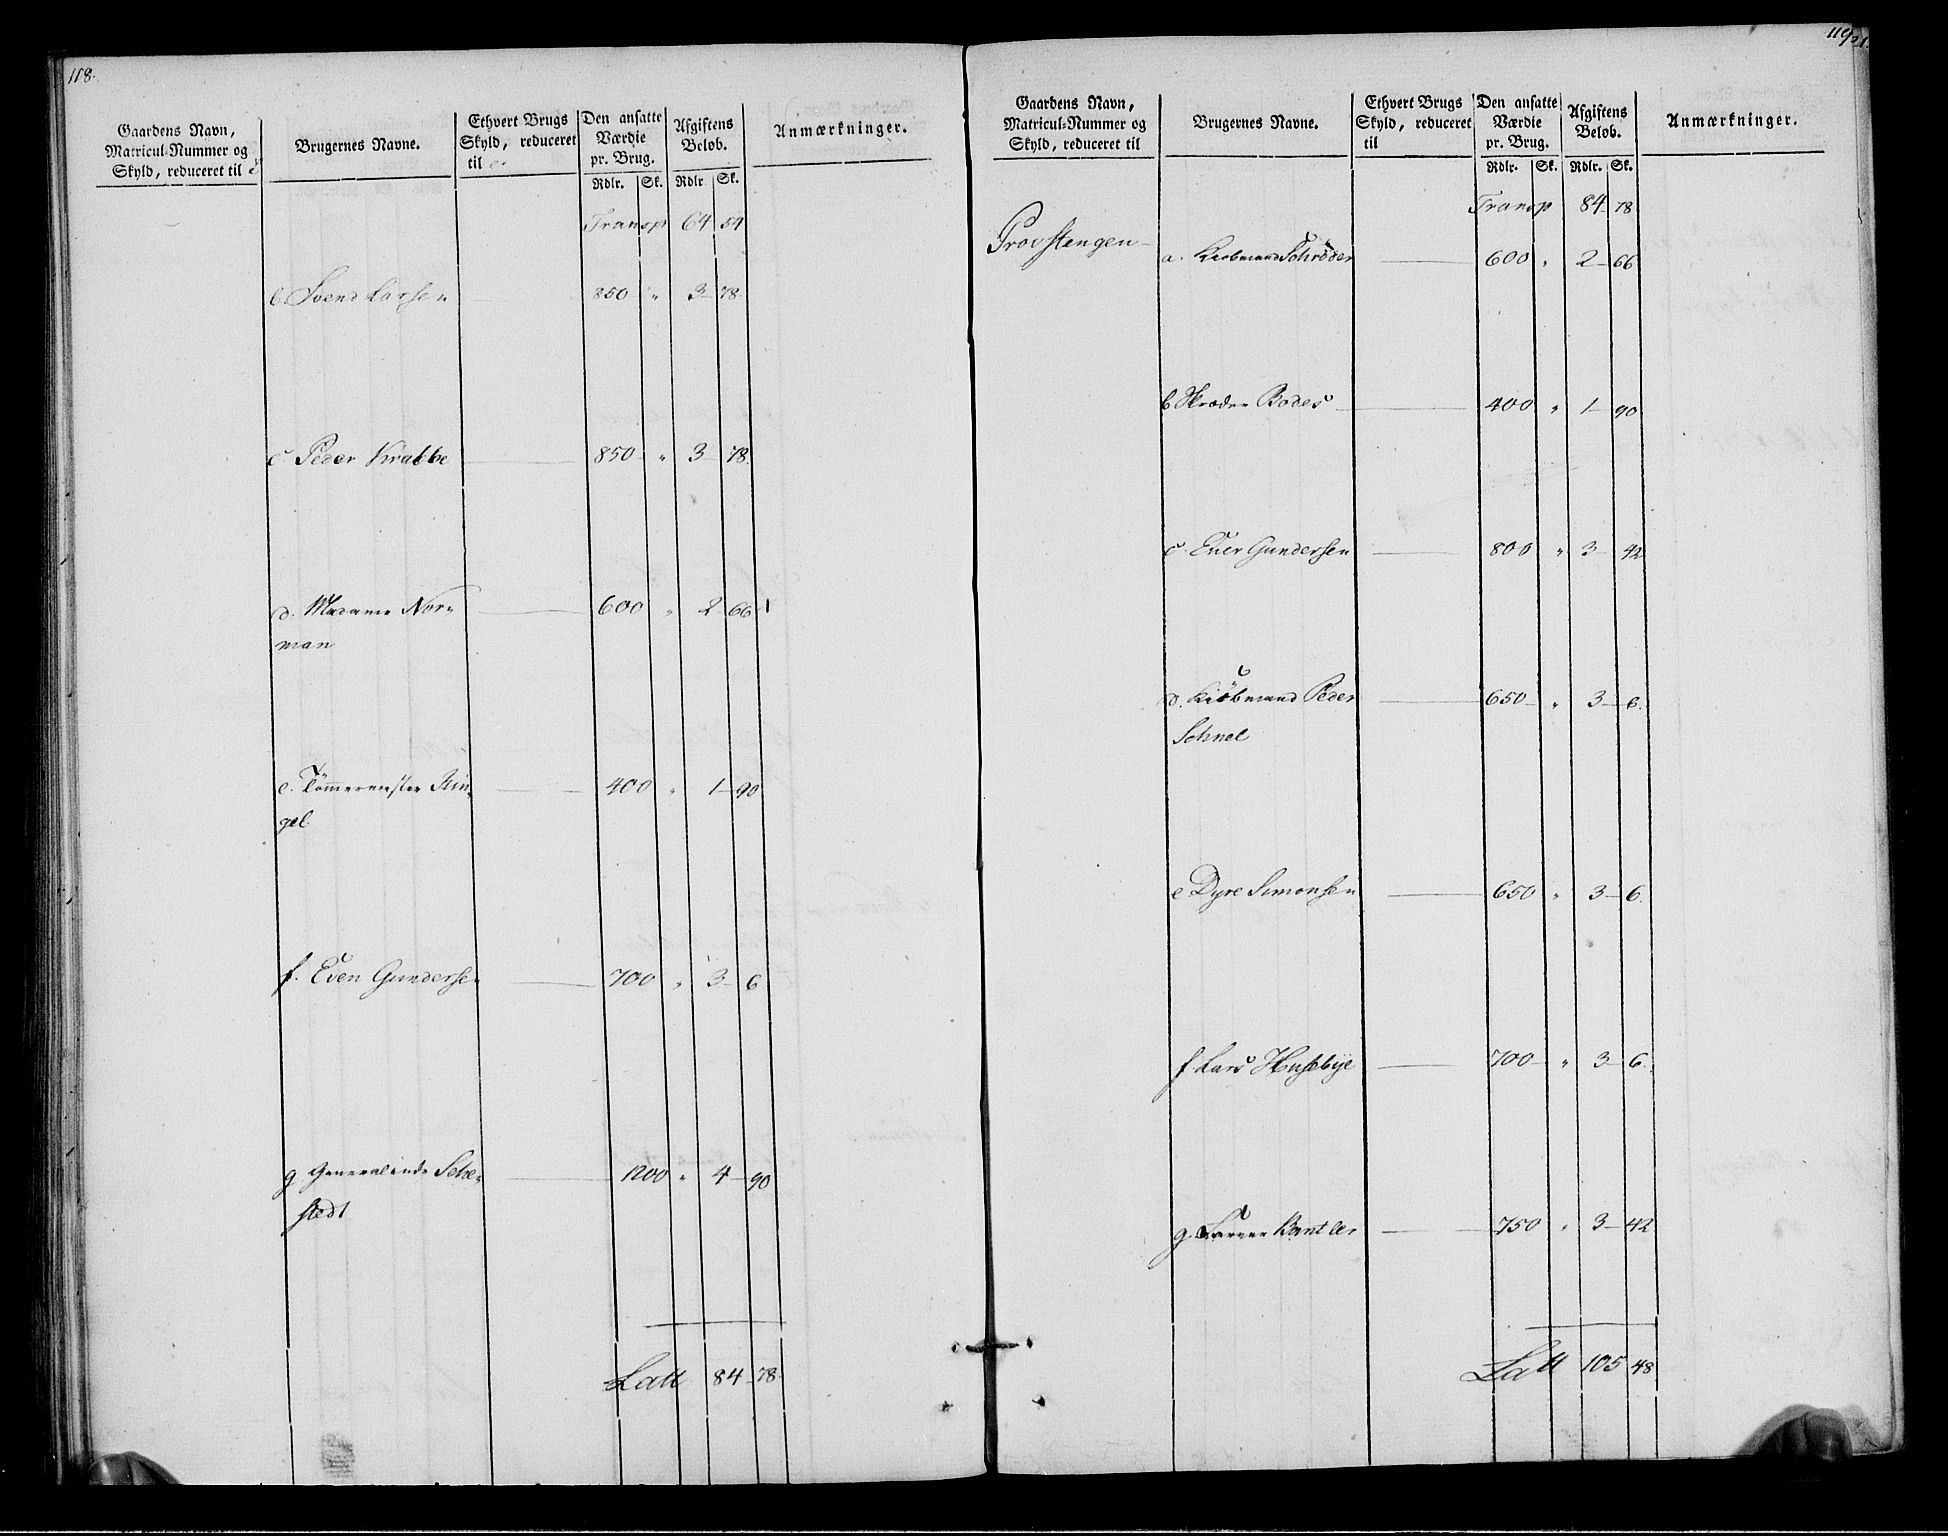 118.
Gaardens Navn,
Matricul-Nummer og
Skyld, reduceret til
Brugernes Navne.
Ethvert Brugs
Skyld, reduceret
til
Den ansatte
Værdie
pr. Brug.
Rdlr. Sk.
Afgiftens
Beløb.
Rdlr Sk.
Anmærkninger.
Transp 64 54
b. Svend Larsen 850 " 3 78.
c Peder Krabbe 850 " 3 78.
d. Madame Nor-
man 600 " 2 66
e. Tömmermester Rin-
gel 400 " 1 90
f. Even Gundersen 700 " 3 6
g Generalinde Sche-
stedt 1200 " 4 90
Latt 84 78
119
Gaardens Navn,
Matricul-Nummer og
Skyld, reduceret til
Brugernes Navne.
Ethvert Brugs
Skyld, reduceret
til
Den ansatte
Værdie
pr. Brug.
Rdlr. Sk.
Afgiftens
Beløb.
Rdlr. Sk.
Anmærkninger.
Transp 84 78
Provstengen
a. Kiöbmand Schrøder 600 " 2 66
b Skræder Bodes 400 " 1 90
c. Even Gundersen 800 " 3 42
d. Kiöbmand Peder
Schnel 650 " 3 6.
e Dyre Simonsen 650 " 3 6.
f Lars Husebye 700 " 3 6.
g. Farver Bantler 750 " 3 42
Latt 105 48